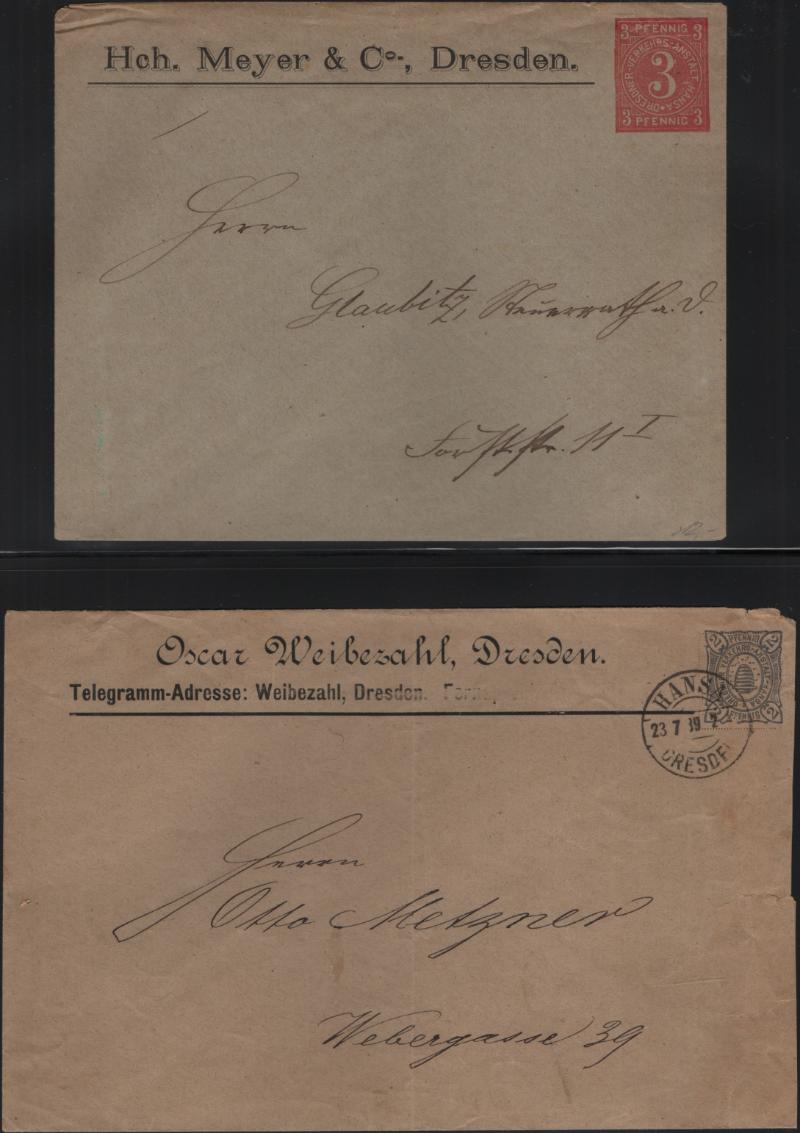 Hch. Meyer & Co., Dresden.
3 PFENNIG 3
DRESDNER VERKEHRS-ANSTALT HANSA
3
3 PFENNIG 3
Herrn
Glaubitz, Steuerrath a. D.
Forststr. 11 I
Oscar Weibezahl, Dresden.
Telegramm-Adresse: Weibezahl, Dresden.
2 PFENNIG 2
VERKEHRS-ANSTALT
PFENNIG 2
HANSA
23 7 89
DRESD
Herrn
Otto Metzner
Webergasse 39